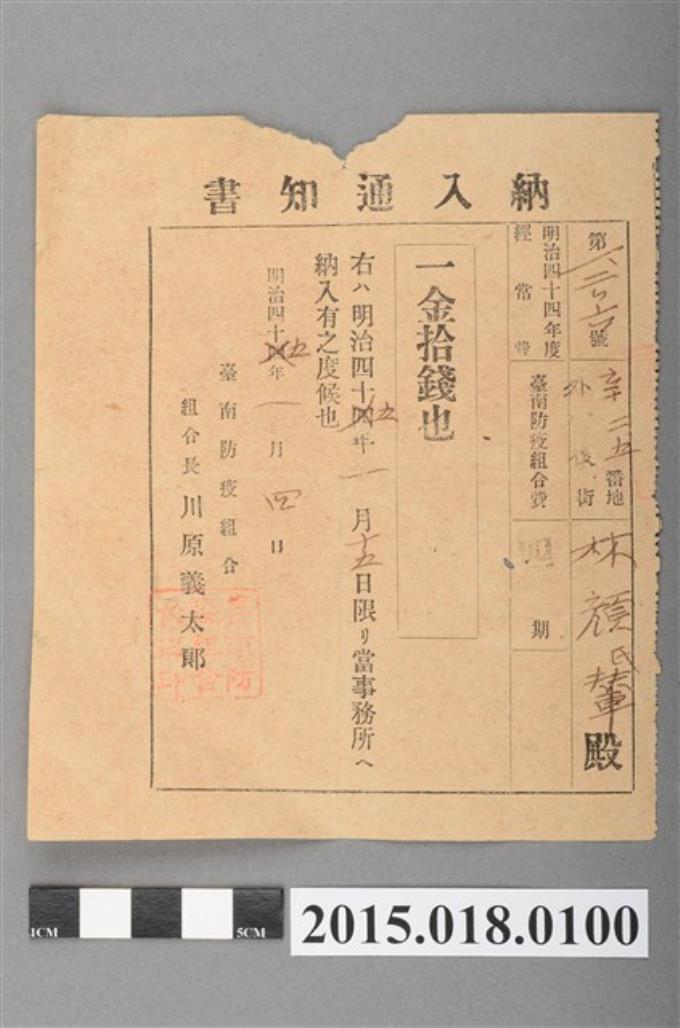 納入通知書
第 號
辛二五番地
外 後 街
林顏氏輦殿
明治四十四年度
經常費
臺南防疫組合費
期
一金拾錢也
右ハ明治四十四五年一月十五日限リ當事務所ヘ
納入有之度候也
明治四十四五年一月四日
臺南防疫組合
組合長川原義太郎
1CM
5CM
2015.018.0100